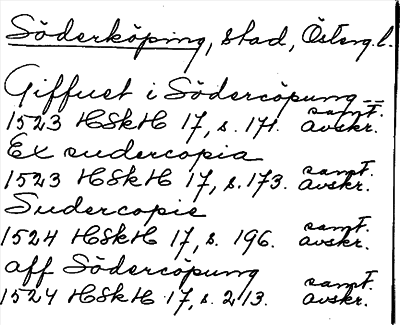 Söderköping, stad, Österg.l.
Giffuet i Södercöpung --
1523 HSkH 17, s. 171. samt. avskr.
Ex sudercopia
1523 HSkH 17, s. 173. samt. avskr.
Sudercopie
1524 HSkH 17, s. 196. samt. avskr.
aff Södercöpung
1524 HSkH 17, s. 213. samt. avskr.